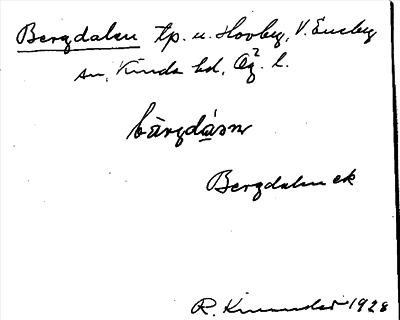 Bergdalen tp. u. Hovby, V. Eneby
sn, Kinds hd, Ög. l.
bärgdásn
Bergdalen ek
R. 1928